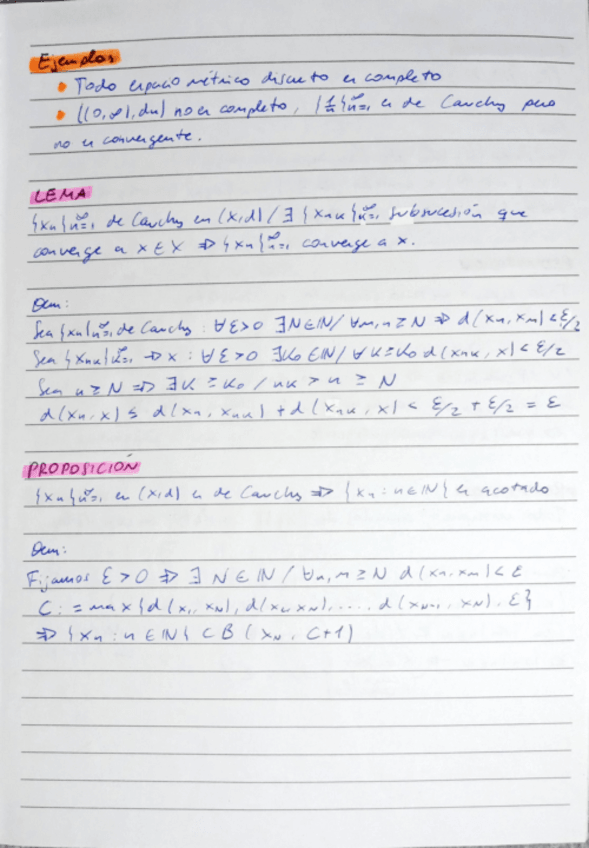 Ejemplos
• Todo espacio métrico discreto es completo
• ((0,∞), du) no es completo, {1/n}∞n=1 es de Cauchy pero
no es convergente.
LEMA
{xn}∞n=1 de Cauchy en (X,d) / ∃ {xnk}∞k=1 subsucesión que
converge a x ∈ X ⇒ {xn}∞n=1 converge a x.
Dem:
Sea {xn}∞n=1 de Cauchy : ∀ε>0 ∃N∈ℕ / ∀m,n ≥ N ⇒ d(xn, xm) < ε/2
Sea {xnk}∞k=1 → x : ∀ε>0 ∃k0 ∈ ℕ / ∀k ≥ k0 d(xnk, x) < ε/2
Sea n ≥ N ⇒ ∃k ≥ k0 / nk > n ≥ N
d(xn, x) ≤ d(xn, xnk) + d(xnk, x) < ε/2 + ε/2 = ε
PROPOSICIÓN
{xn}∞n=1 en (X,d) es de Cauchy ⇒ {xn : n ∈ ℕ} es acotado
Dem:
Fijamos ε > 0 ⇒ ∃ N ∈ ℕ / ∀n, m ≥ N d(xn, xm) < ε
C := max{d(x1, xN), d(x2, xN), ..., d(xN-1, xN), ε}
⇒ {xn : n ∈ ℕ} ⊂ B(xN, C+1)